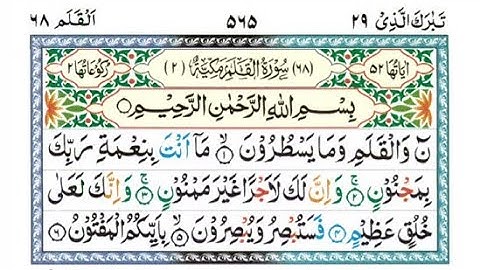 تَبٰرَكَ الَّذِیْ ۲۹ ۵۶۵ اَلْقَلَم ۶۸
اٰیَاتُهَا ۵۲ (۶۸) سُوْرَةُ الْقَلَمِ مَكِّیَّةٌ (۲) رُكُوْعَاتُهَا ۲
بِسْمِ اللّٰهِ الرَّحْمٰنِ الرَّحِیْمِ
نٓ وَالْقَلَمِ وَمَا یَسْطُرُوْنَ ۙ‏﴿۱﴾ مَاۤ اَنْتَ بِنِعْمَةِ رَبِّكَ
بِمَجْنُوْنٍ ۚ‏﴿۲﴾ وَاِنَّ لَكَ لَاَجْرًا غَیْرَ مَمْنُوْنٍ ۚ‏﴿۳﴾ وَاِنَّكَ لَعَلٰی
خُلُقٍ عَظِیْمٍ ﴿۴﴾ فَسَتُبْصِرُ وَیُبْصِرُوْنَ ۙ‏﴿۵﴾ بِاَیِّىكُمُ الْمَفْتُوْنُ ﴿۶﴾